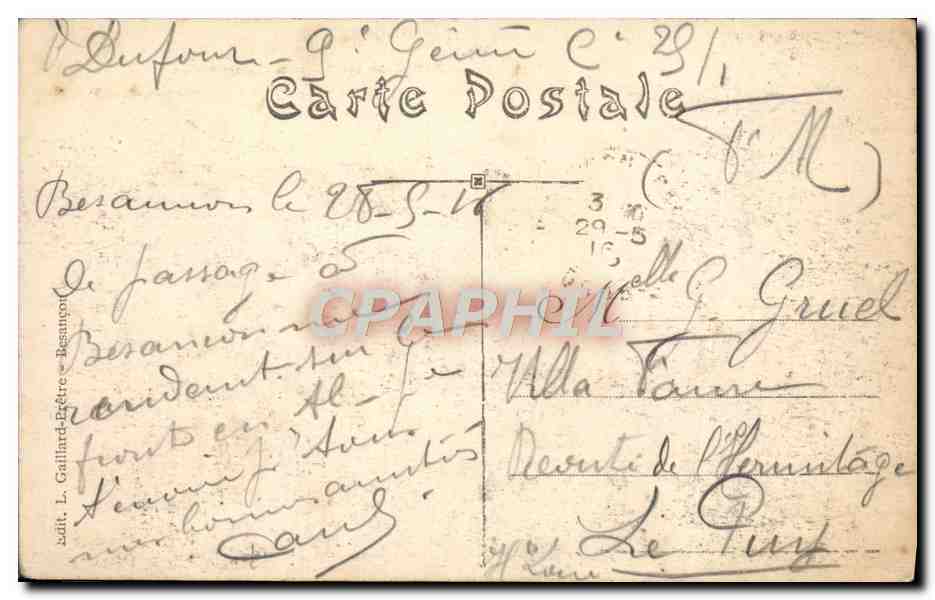 Dufour - 9e Génie Cie 25/1
Carte Postale
(F M)
Besançon le 28-5-16
3
29-5
16
de passage à
Besançon me
rendant sur le
front en Al-
j'envoie à tous
mes bonnes amitiés
Paul
Melle G. Gruel
Villa Faure
Route de l'Hermitage
Le Puy
Hte Loire
Edit. L. Gaillard-Prêtre - Besançon
CPAPHIL